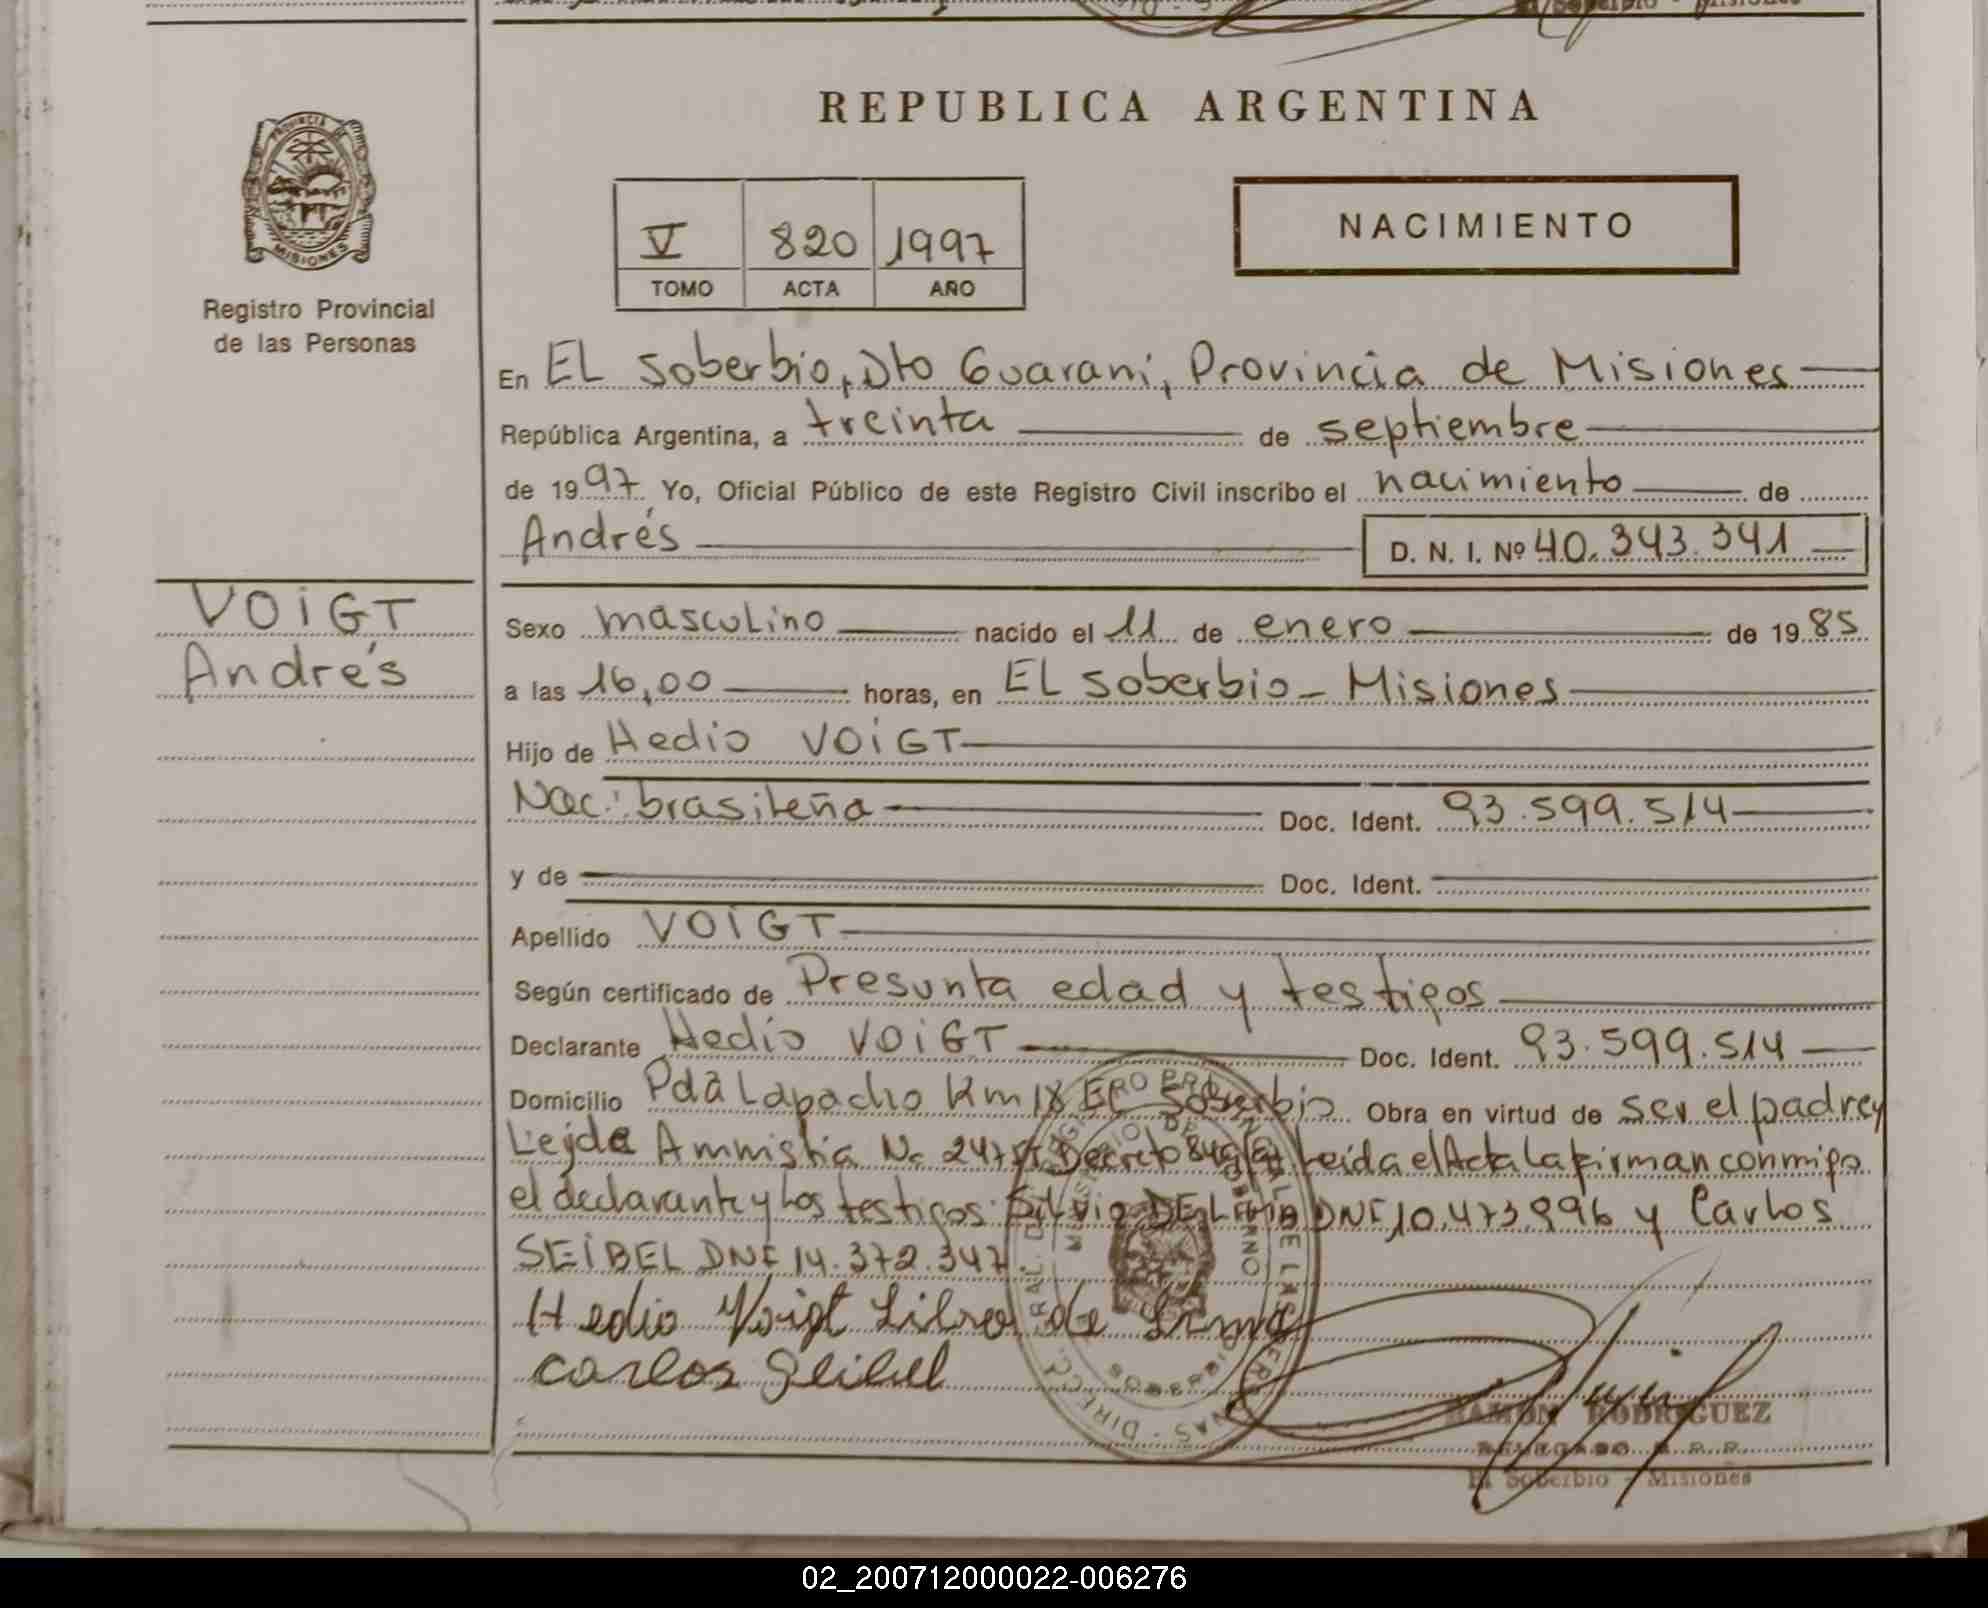 REPUBLICA ARGENTINA
PROVINCIA DE
MISIONES
Registro Provincial
de las Personas
V 820 1997
TOMO ACTA AÑO
NACIMIENTO
En EL Soberbio, Dto Guaraní, Provincia de Misiones
República Argentina, a treinta de septiembre
de 1997 Yo, Oficial Público de este Registro Civil inscribo el nacimiento de
Andrés D. N. I. Nº 40.343.341
VOIGT
Andrés
Sexo masculino nacido el 11 de enero de 1985
a las 16,00 horas, en EL Soberbio - Misiones
Hijo de Hedio VOIGT
Nac: brasileña Doc. Ident. 93.599.514
y de Doc. Ident.
Apellido VOIGT
Según certificado de Presunta edad y testigos
Declarante Hedio VOIGT Doc. Ident. 93.599.514
Domicilio Pda Lapacho Km 18 EL Soberbio Obra en virtud de ser el padre y
Ley de Amnistia Nº Decreto Leida el Acta la firman conmigo
el declarante y los testigos: Silvio DNI 10.473.996 y Carlos
SEIBEL DNI 14.372.347
Hedio Voigt
Carlos Seibel
RAMON RODRIGUEZ
DELEGADO R. P. P.
El Soberbio - Misiones
02_200712000022-006276